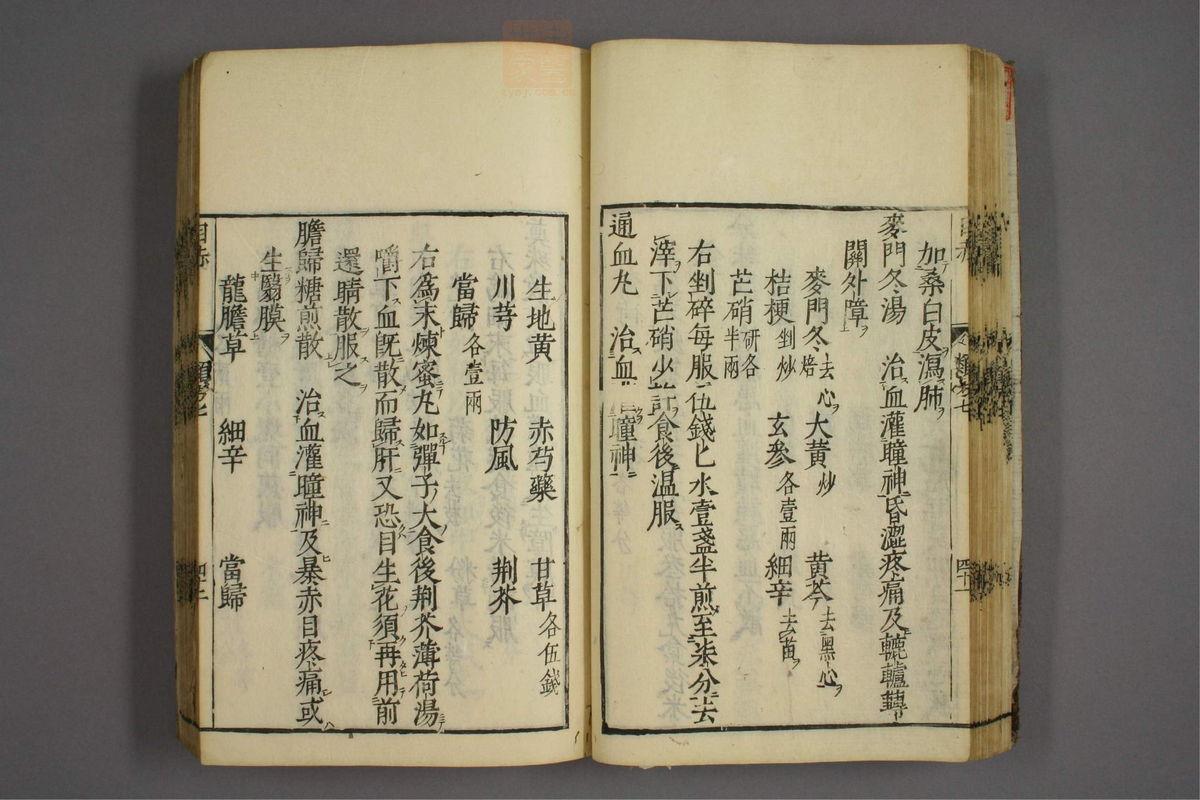 加桑白皮瀉肺
麥門冬湯 治血灌瞳神昏澀疼痛及轆轤轉
關外障
麥門冬去心焙 大黃炒 黃芩去黑心
桔梗剉炒 玄參各壹兩 細辛去苗
芒硝研各半兩
右剉碎每服伍錢匕水壹盞半煎至柒分去
滓下芒硝少許食後温服
通血丸 治血瞳神
生地黃 赤芍藥 甘草各伍錢
川芎 防風 荆芥
當歸各壹兩
右爲末煉蜜丸如彈子大食後荆芥薄荷湯
嚼下血既散而歸肝又恐目生花須再用前
還睛散服之
膽歸糖煎散 治血灌瞳神及暴赤目疼痛或
生翳膜
龍膽草 細辛 當歸